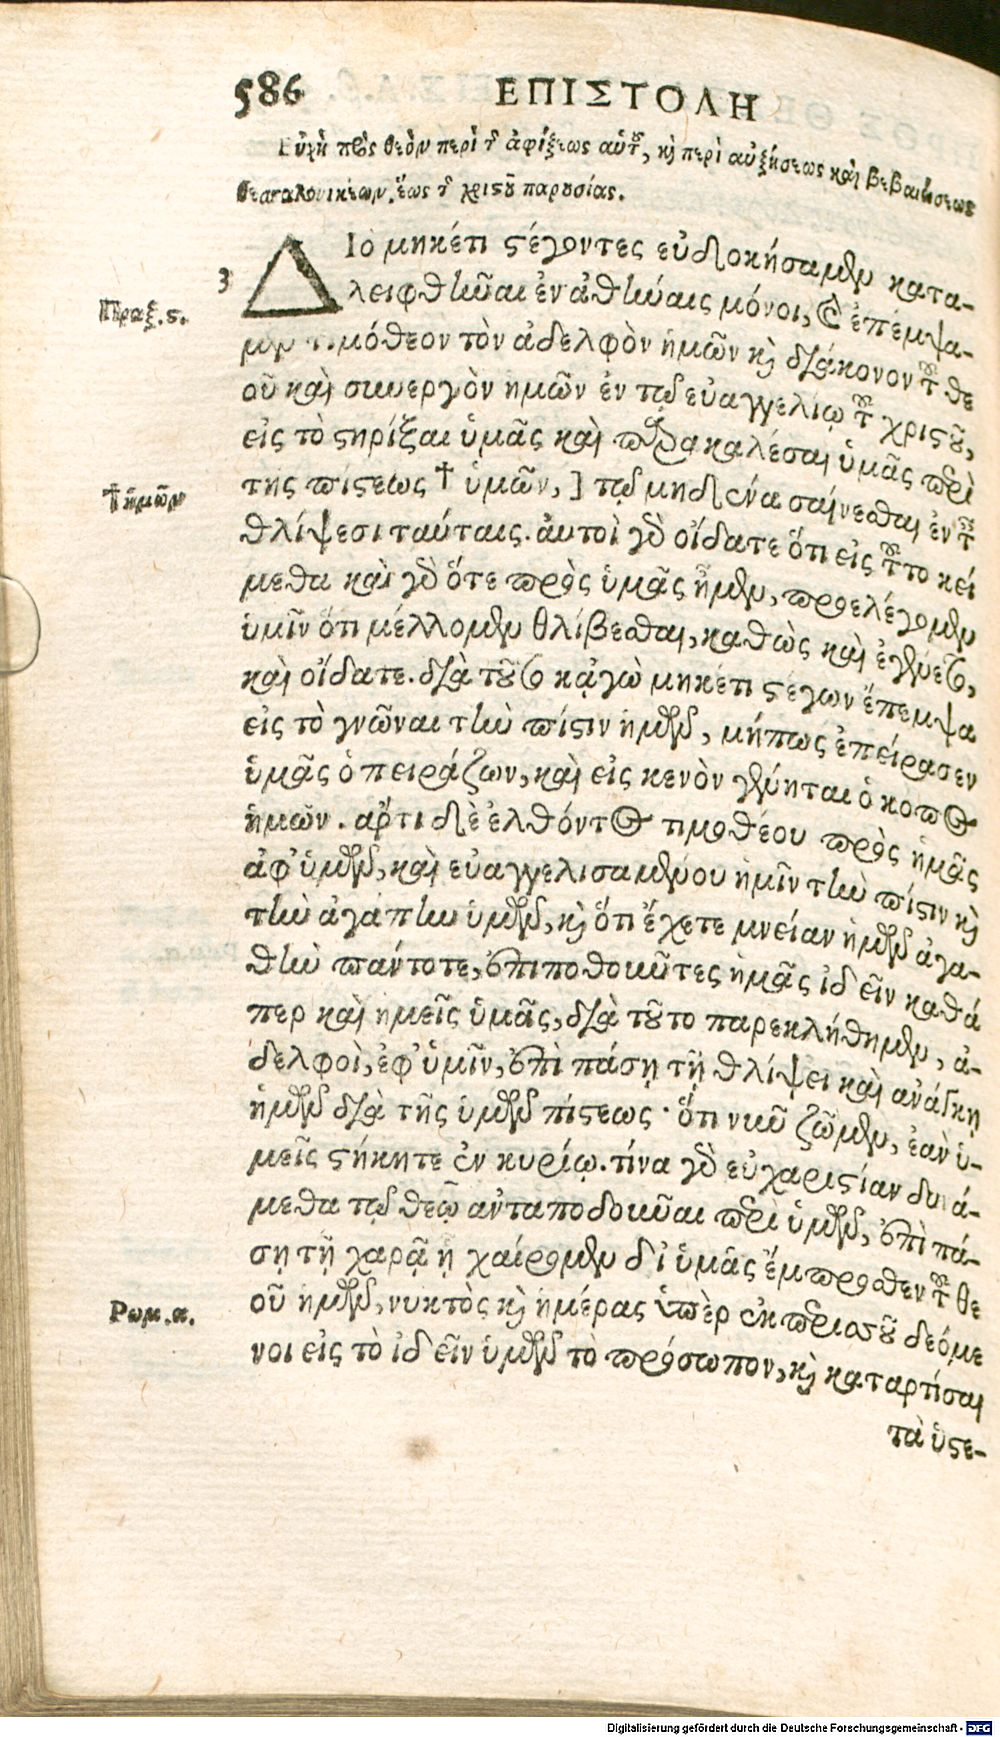 586 ΕΠΙΣΤΟΛΗ
Εὐχὴ πρὸς θεὸν περὶ τ͂ ἀφίξεως αὐτ͂, κ̀ περὶ αὐξήσεως καὶ βεβαιώσεως
θεσσαλονικέων, ἕως τ͂ χριστοῦ παρουσίας.
3 ΔΙὸ μηκέτι στέγοντες εὐδοκήσαμεν κατα-
Πραξ.ς. λειφθῆναι ἐν ἀθήναις μόνοι, καὶ ἐπέμψα-
μεν τιμόθεον τὸν ἀδελφὸν ἡμῶν καὶ διάκονον τοῦ θε
οῦ καὶ συνεργὸν ἡμῶν ἐν τῷ εὐαγγελίῳ τοῦ χριστοῦ,
εἰς τὸ στηρίξαι ὑμᾶς καὶ παρακαλέσαι ὑμᾶς περὶ
†ἡμῶν τῆς πίστεως † ὑμῶν, ] τῷ μηδένα σαίνεσθαι ἐν τ͂
θλίψεσι ταύταις. ἀυτοὶ γὸ οἴδατε ὅτι εἰς τοῦτο κεί
μεθα καὶ γὸ ὅτε πρὸς ὑμᾶς ἦμεν, προελέγομεν
ὑμῖν ὅτι μέλλομεν θλίβεσθαι, καθὼς καὶ ἐγένετο,
καὶ οἴδατε. διὰ τοῦτο κᾀγὼ μηκέτι στέγων ἔπεμψα
εἰς τὸ γνῶναι τὴν πίστιν ἡμῶν, μήπως ἐπείρασεν
ὑμᾶς ὁ πειράζων, καὶ εἰς κενὸν γένηται ὁ κοπος
ἡμῶν. αρ͂τι δὲ ἐλθόντος τιμοθέου πρὸς ἡμᾶς
ἀφ' ὑμῶν, καὶ εὐαγγελισαμένου ἡμῖν τὴν πίστιν κ̀
τὴν ἀγάπην ὑμῶν, κ̀ ὅτι ἔχετε μνείαν ἡμῶν ἀγα-
θὴν πάντοτε, ἐπιποθοῦντες ἡμᾶς ἰδεῖν καθά
περ καὶ ἡμεῖς ὑμᾶς, διὰ τοῦτο παρεκλήθημεν, ἀ-
δελφοὶ, ἐφ' ὑμῖν, ἐπὶ πάσῃ τῇ θλίψει καὶ ανάγκῃ
ἡμῶν διὰ τῆς ὑμῶν πίστεως· ὅτι νῦν ζῶμεν, ἐὰν ὑ-
μεῖς στήκητε ἐν κυρίῳ. τίνα γὸ εὐχαριστίαν δυνά-
μεθα τῷ θεῷ ανταποδοῦναι περὶ ὑμῶν, ἐπὶ πά-
σῃ τῇ χαρᾷ ᾗ χαίρομεν δι' ὑμᾶς ἔμπροσθεν τοῦ θε
Ρωμ.α. οῦ ἡμῶν, νυκτὸς κ̀ ἡμέρας ὑπὲρ ἐκ περισσοῦ δεόμε
νοι εἰς τὸ ἰδεῖν ὑμῶν τὸ πρόσωπον, κ̀ καταρτίσαι
τὰ ὑστε-
Digitalisierung gefördert durch die Deutsche Forschungsgemeinschaft - DFG